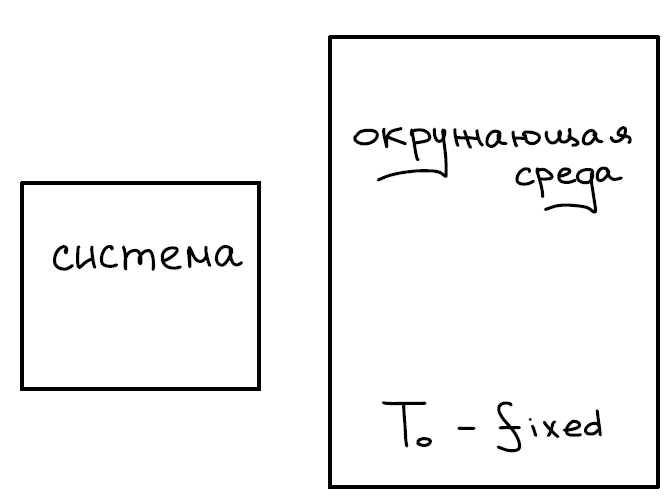 система
окружающая
среда
T₀ - fixed